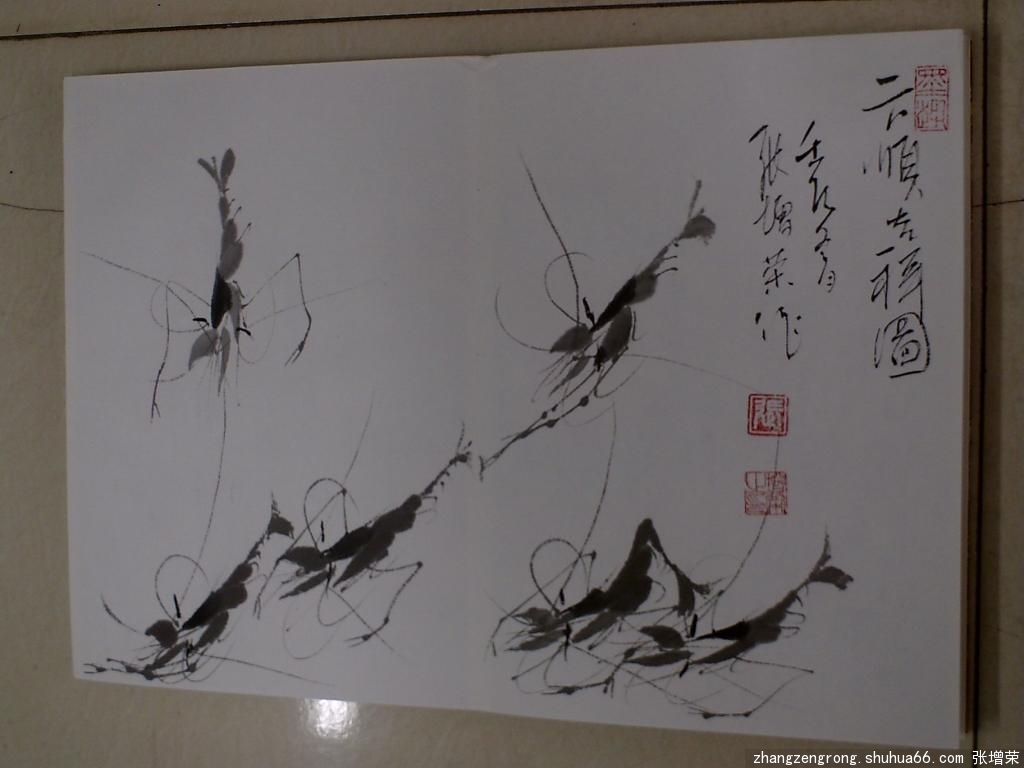 六順吉祥圖
壬辰冬月
张增荣作
張
zhangzengrong.shuhua66.com 张增荣